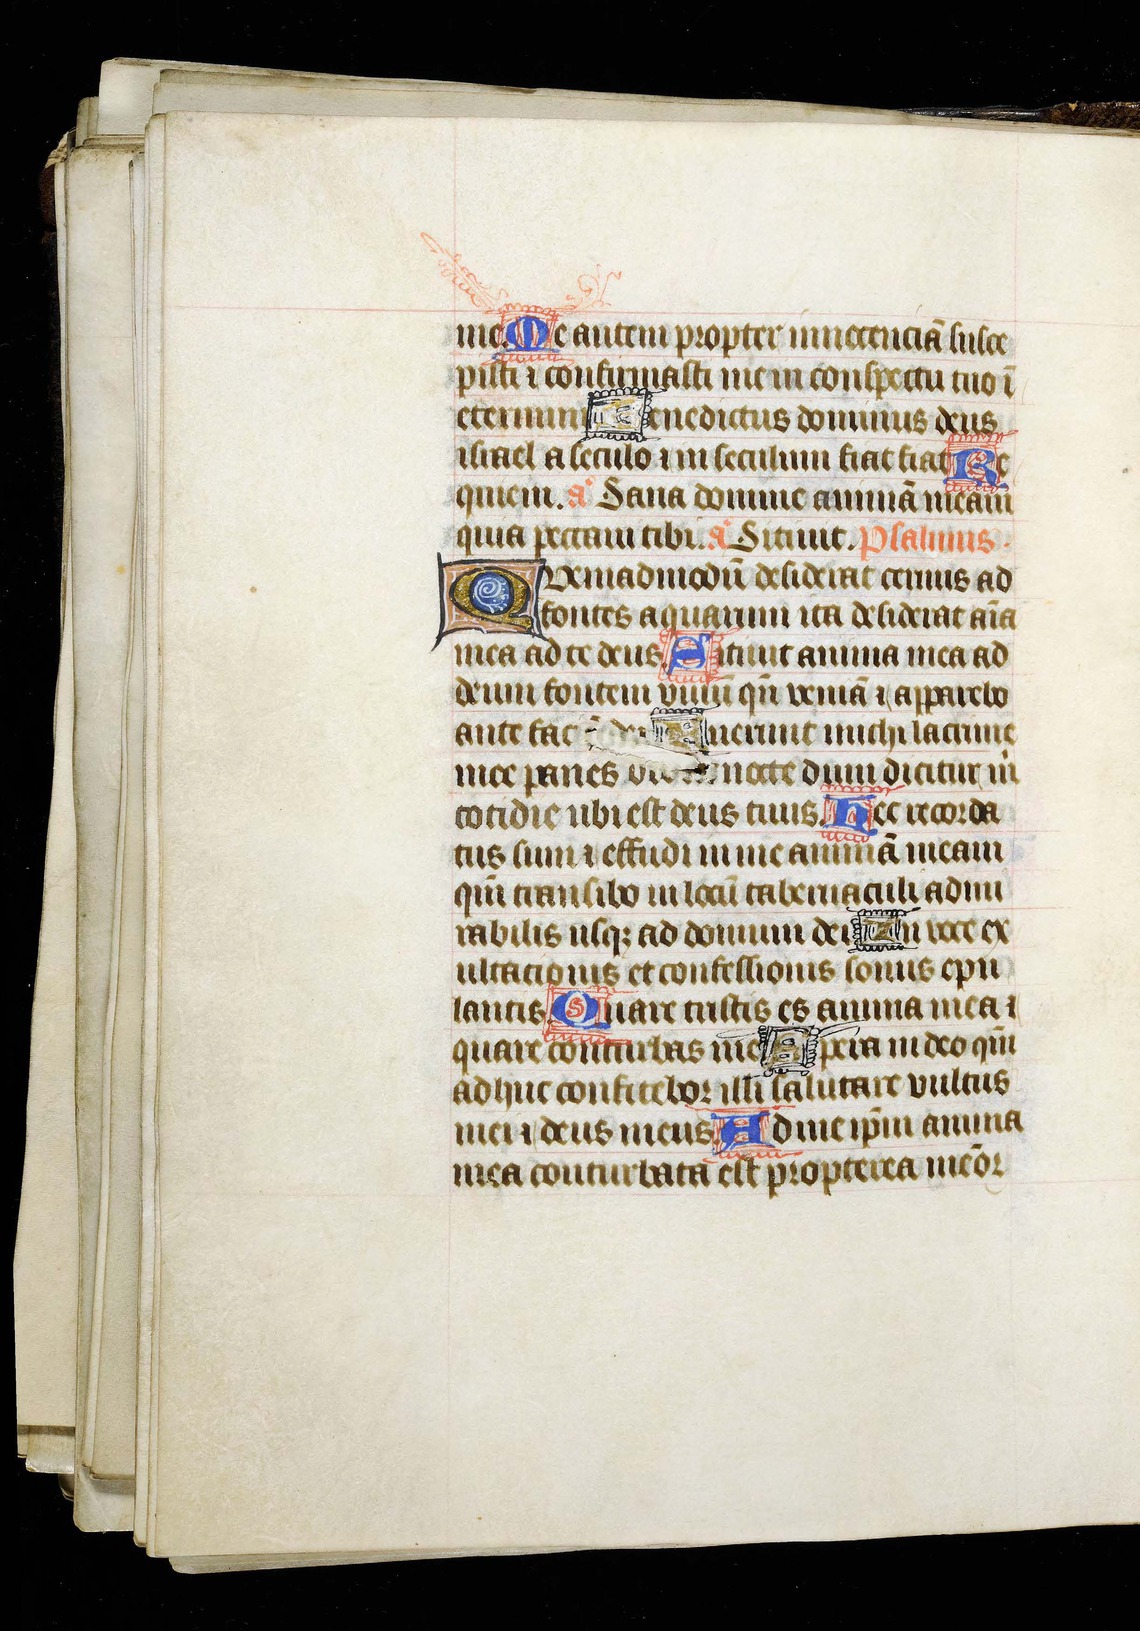 me. Me autem propter innocenciā susce
pisti ⁊ confirmasti me in conspectu tuo ī
eternum Benedictus dominus deus
israel a seculo ⁊ in seculum fiat fiat Re
quiem. a͛ Sana domine animā meam
quia peccaui tibi. a͛ Sitiuit. Psalmus.
Quemadmodū desiderat ceruus ad
fontes aquarum ita desiderat aīa
mea ad te deus Sitiuit anima mea ad
deum fontem viuū qn̄ veniā ⁊ apparebo
ante fac dei Fuerunt michi lacrime
mee panes noctē dum dicitur m̄
cotidie ubi est deus tuus. Hec recorda
tus sum ⁊ effudi in me animā meam
qm̄ transibo in locū tabernaculi admi
rabilis usqꝫ ad domum dei In voce ex
ultacionis et confessionis sonus epu
lantis Quare tristis es anima mea ⁊
quare conturbas me Spera in deo qm̄
adhuc confitebor illi salutare vultus
mei ⁊ deus meus Ad me ip̄m anima
mea conturbata est propterea meōr